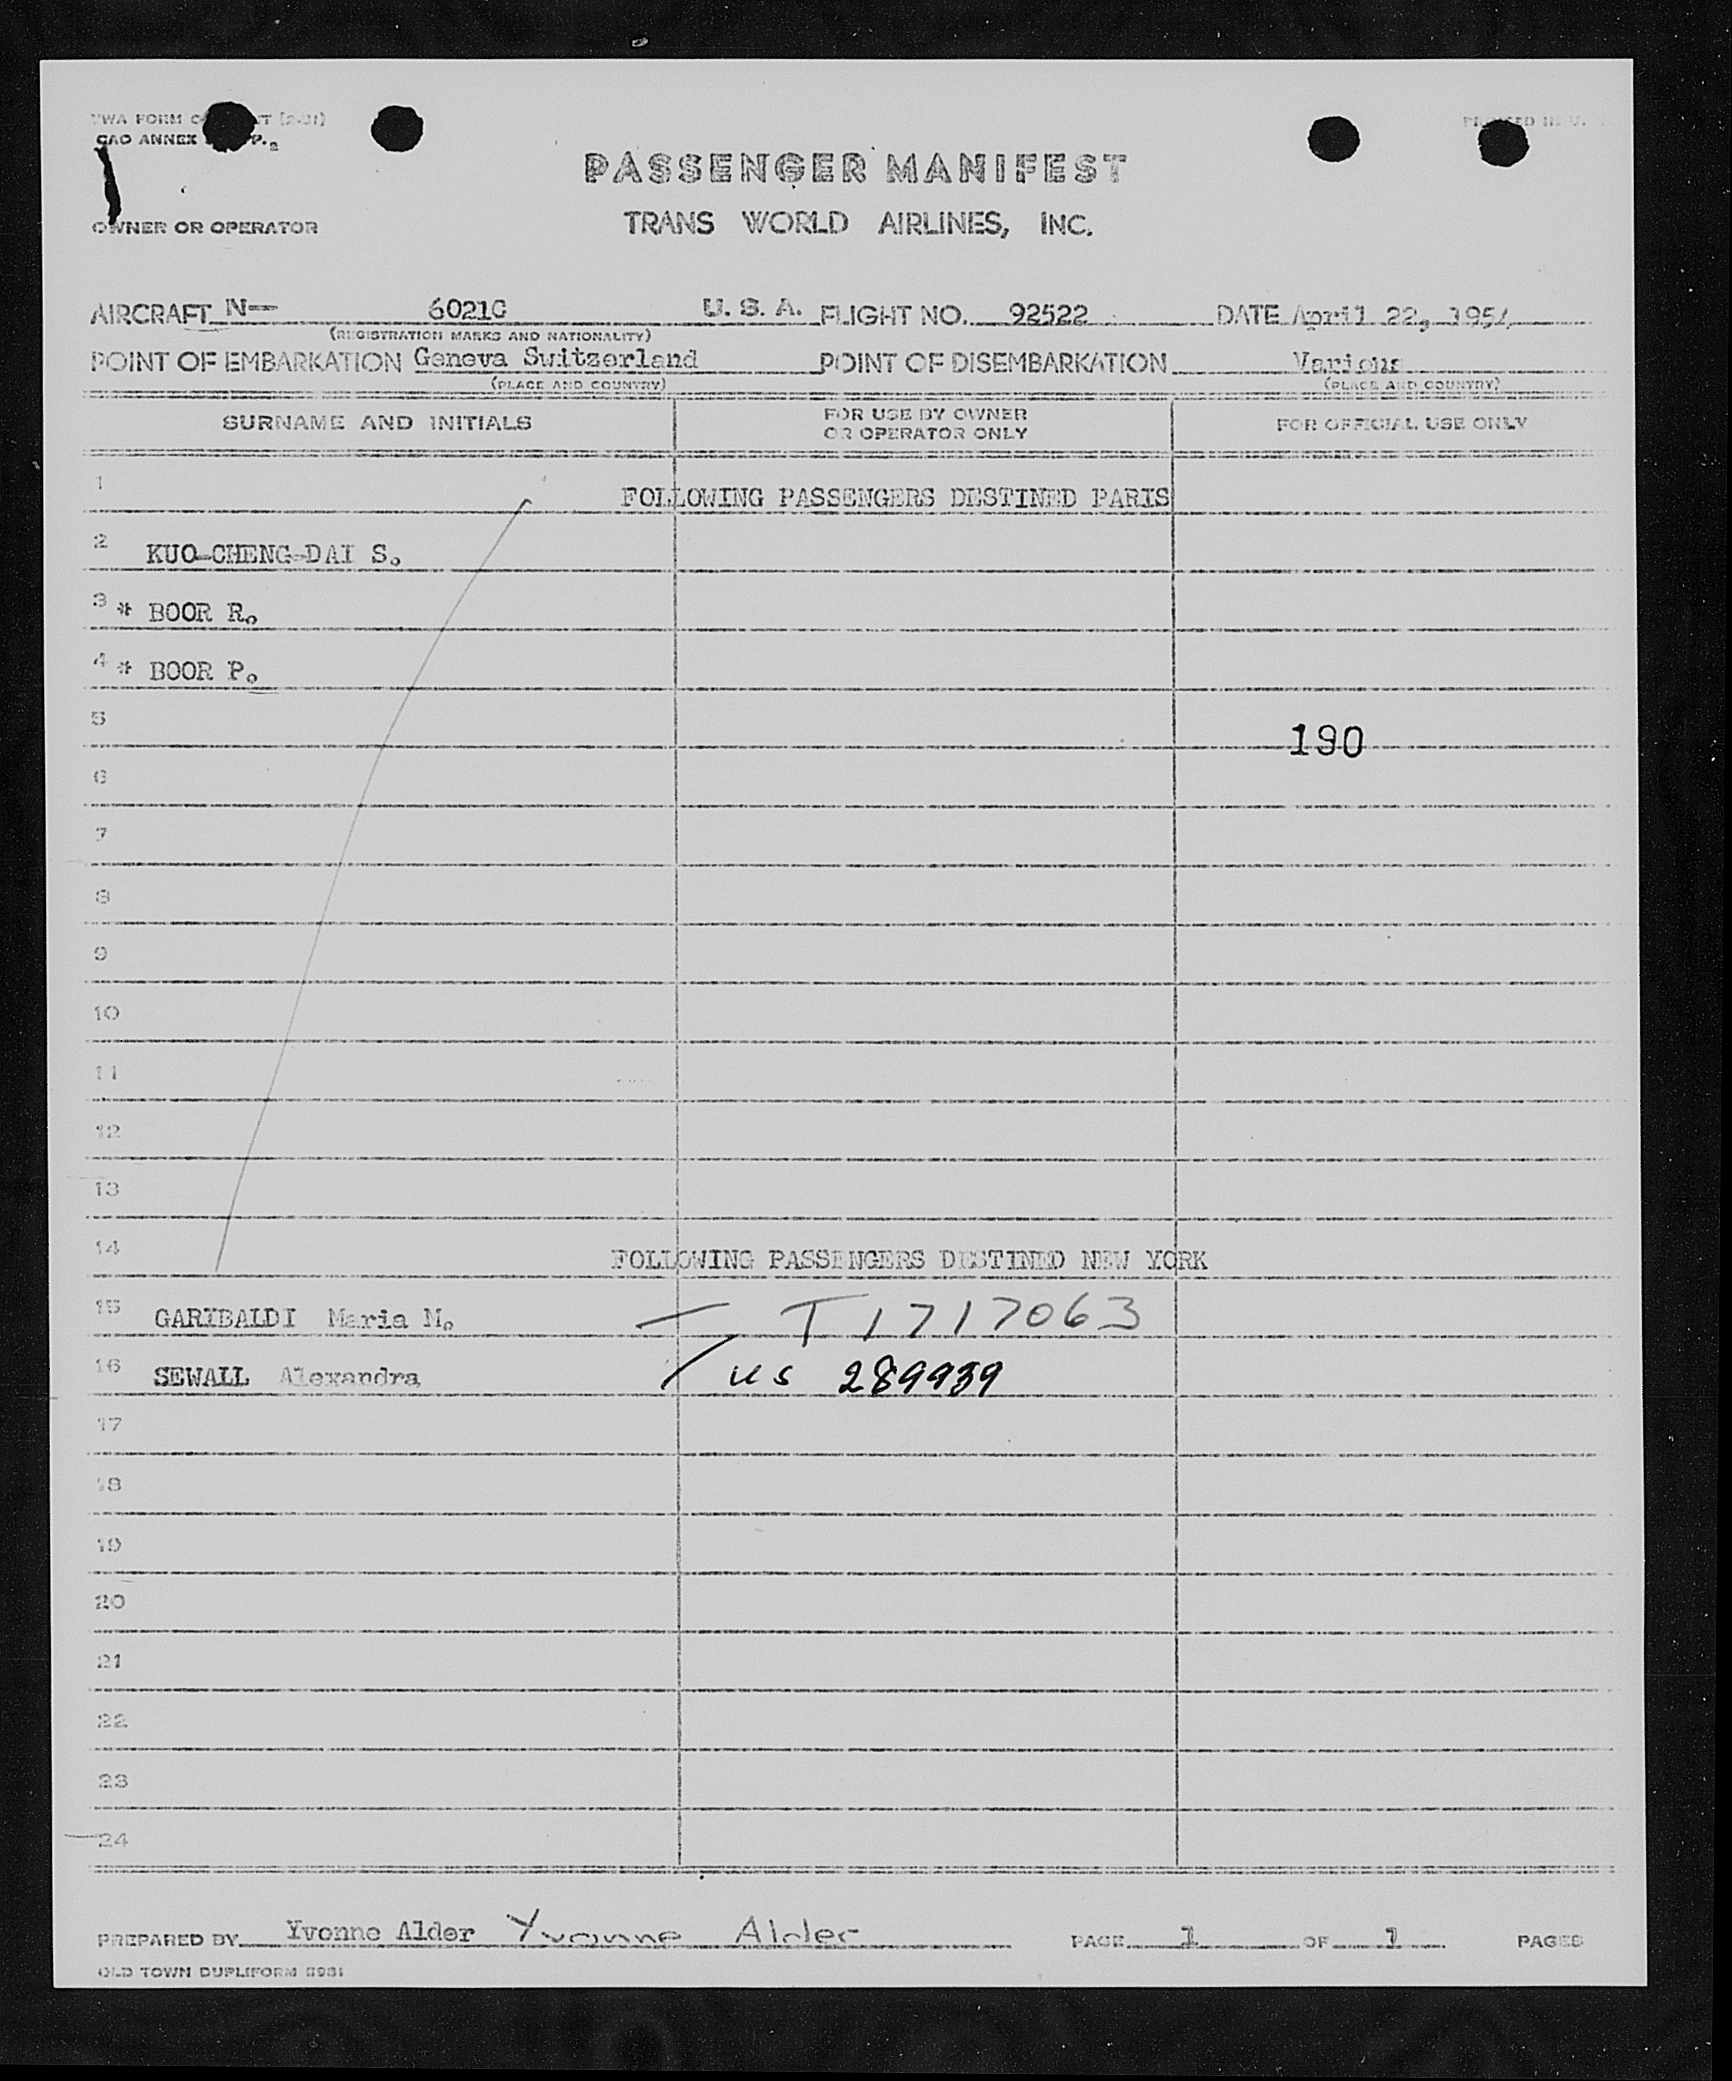 TWA FORM
CAO ANNEX
PASSENGER MANIFEST
OWNER OR OPERATOR
TRANS WORLD AIRLINES, INC.
AIRCRAFT N- 6021C U. S. A. FLIGHT NO. 92522 DATE April 22, 1954
(REGISTRATION MARKS AND NATIONALITY)
POINT OF EMBARKATION Geneva Switzerland POINT OF DISEMBARKATION Various
(PLACE AND COUNTRY) (PLACE AND COUNTRY)
SURNAME AND INITIALS FOR USE BY OWNER OR OPERATOR ONLY FOR OFFICIAL USE ONLY
1 FOLLOWING PASSENGERS DESTINED PARIS
2 KUO-CHENG-DAI S.
3 * BOOR R.
4 * BOOR P.
5 190
6
7
8
9
10
11
12
13
14 FOLLOWING PASSENGERS DESTINED NEW YORK
15 GARIBALDI Maria M. — T 1717063
16 SEWALL Alexandra / US 289939
17
18
19
20
21
22
23
24
PREPARED BY Yvonne Alder Yvonne Alder PAGE 1 OF 1 PAGES
OLD TOWN DUPLIFORM